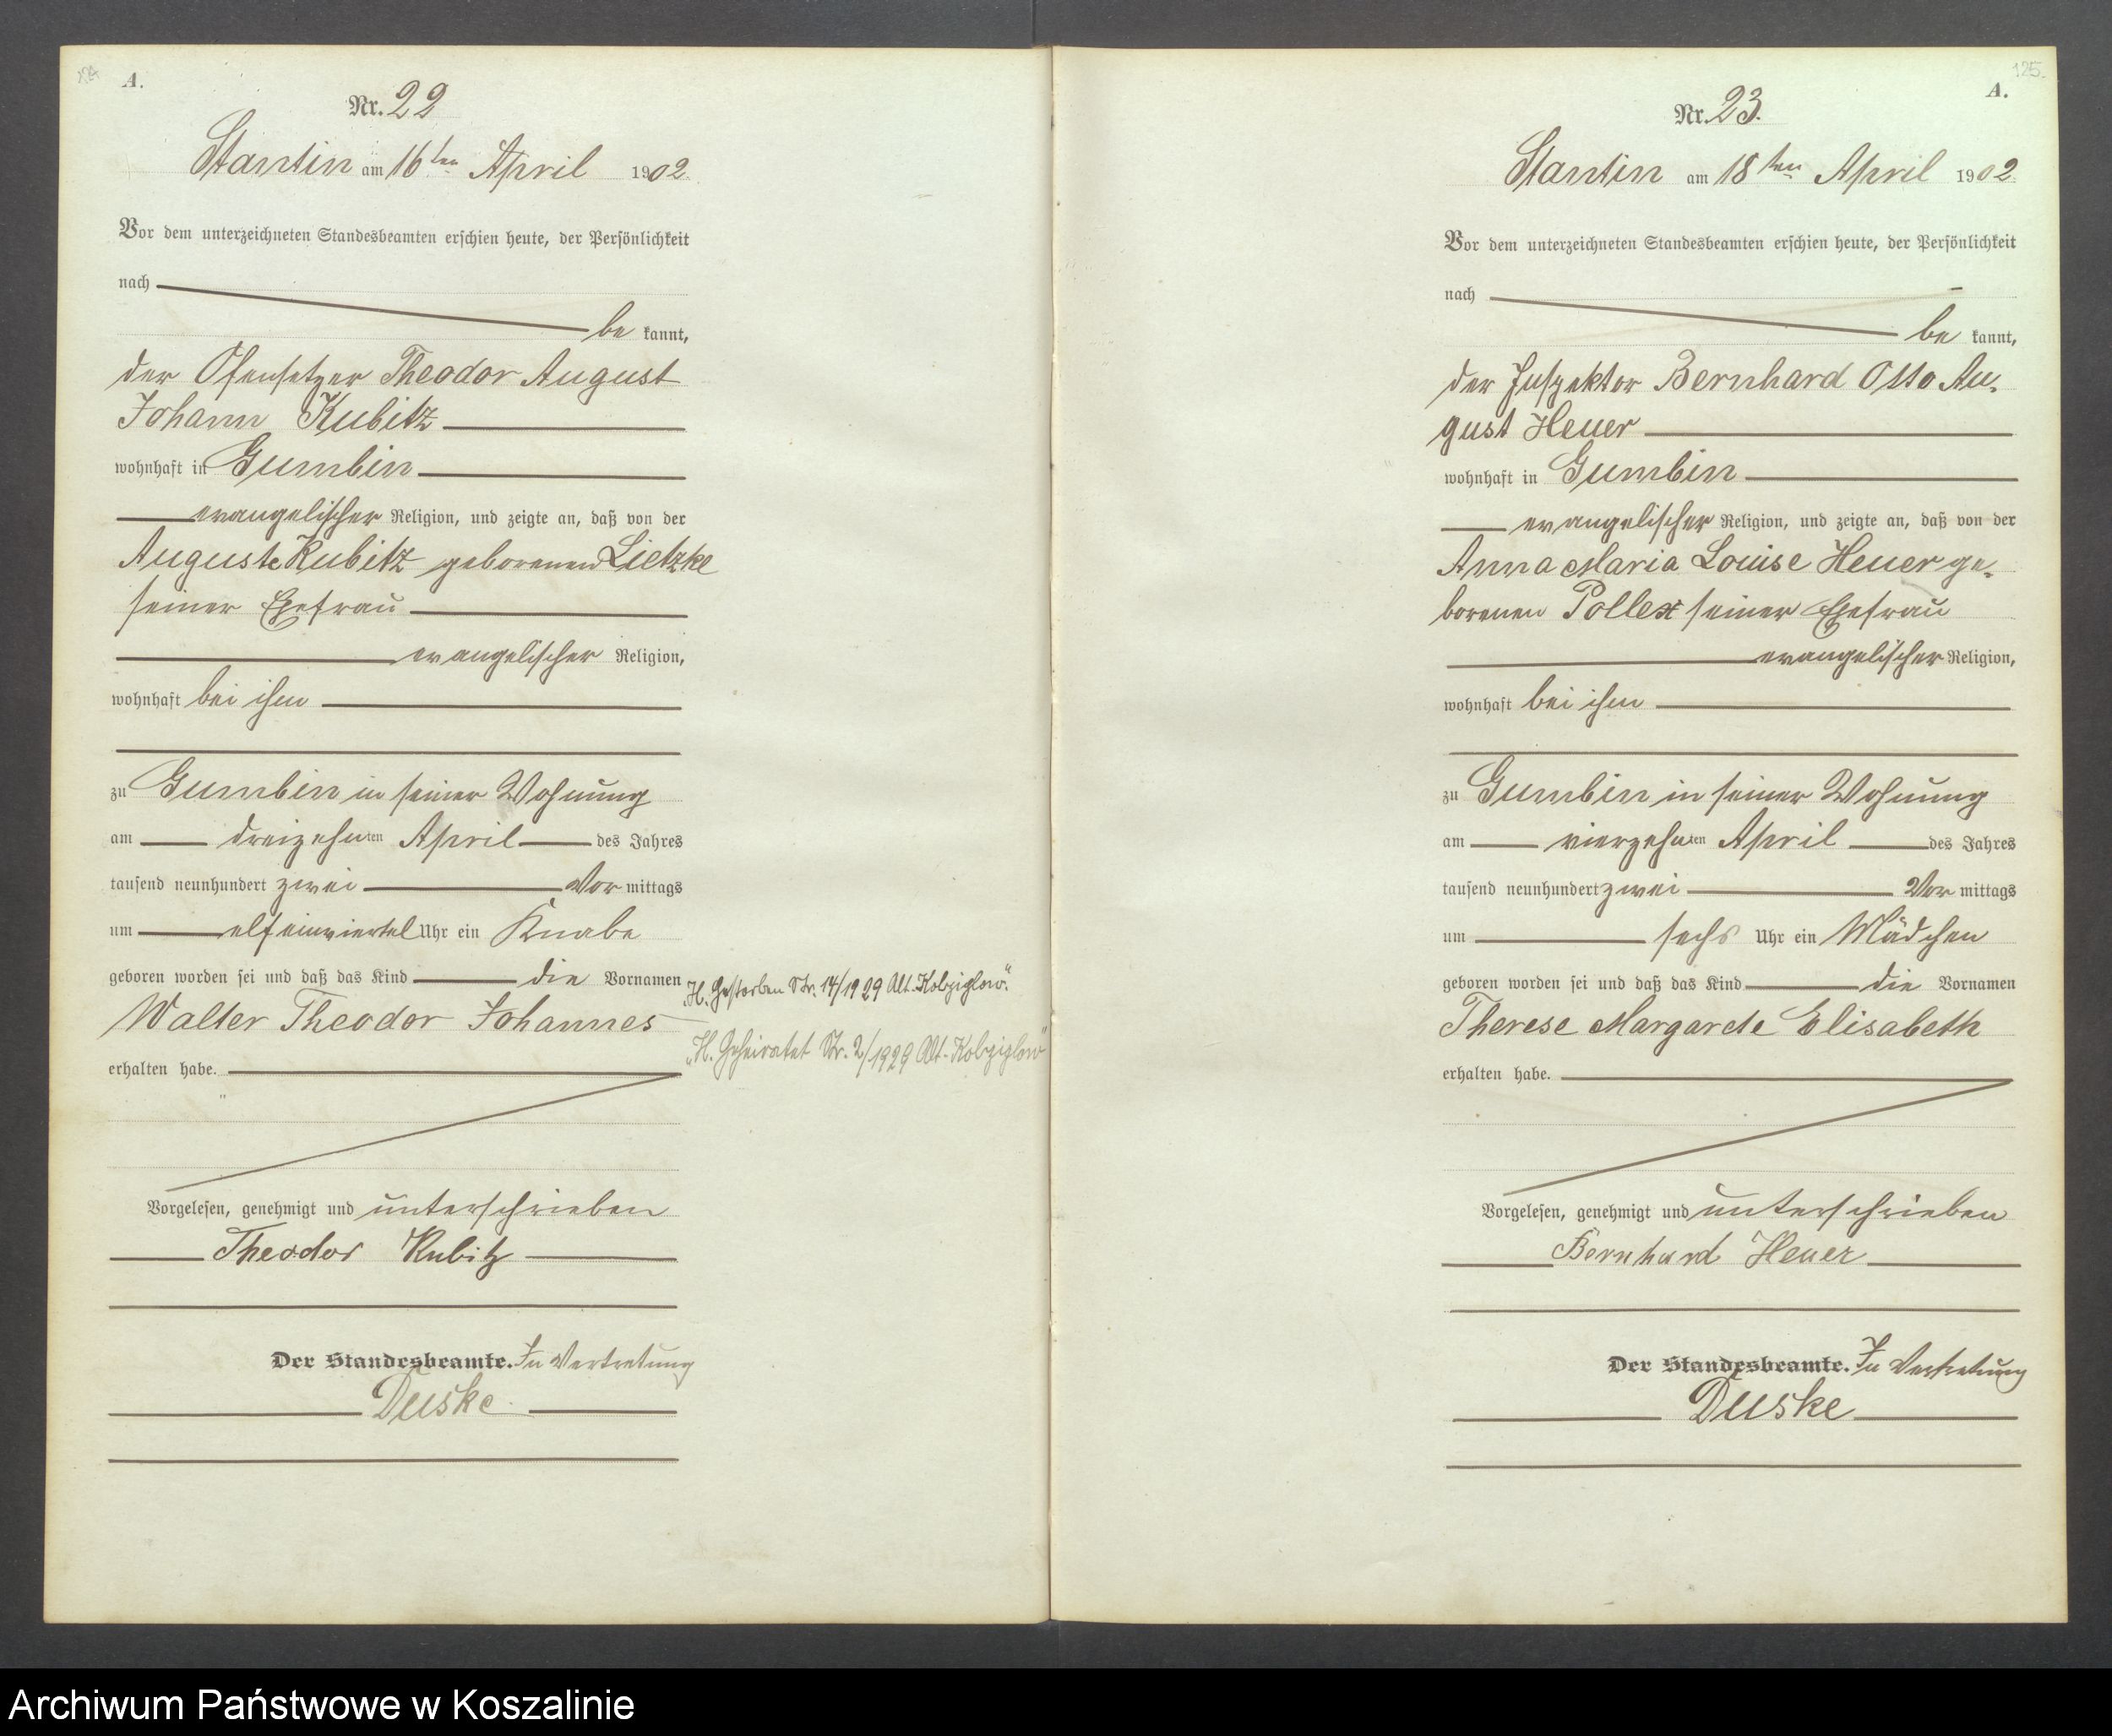 A.
Nr. 22
Stantin am 16ten April 1902
Vor dem unterzeichneten Standesbeamten erschien heute, der Persönlichkeit
nach
be kannt,
der Ofensetzer Theodor August
Johann Kubitz
wohnhaft in Gumbin
evangelischer Religion, und zeigte an, daß von der
Auguste Kubitz geborenen Lietzke
seiner Ehefrau
evangelischer Religion,
wohnhaft bei ihm
zu Gumbin in seiner Wohnung
am dreizehnten April des Jahres
tausend neunhundert zwei Vor mittags
um elf einviertel Uhr ein Knabe
geboren worden sei und daß das Kind die Vornamen
Walter Theodor Johannes
erhalten habe.
„H. Gestorben Nr. 14/1929 Alt-Kolziglow“
„H. Geheiratet Nr. 2/1929 Alt-Kolziglow“
Vorgelesen, genehmigt und unterschrieben
Theodor Kubitz
Der Standesbeamte. In Vertretung
Duske
125.
A.
Nr. 23.
Stantin am 18ten April 1902
Vor dem unterzeichneten Standesbeamten erschien heute, der Persönlichkeit
nach
be kannt,
der Inspektor Bernhard Otto Au-
gust Heuer
wohnhaft in Gumbin
evangelischer Religion, und zeigte an, daß von der
Anna Maria Louise Heuer ge-
borenen seiner Ehefrau
evangelischer Religion,
wohnhaft bei ihm
zu Gumbin in seiner Wohnung
am vierzehnten April des Jahres
tausend neunhundert zwei Vor mittags
um sechs Uhr ein Mädchen
geboren worden sei und daß das Kind die Vornamen
Therese Margarete Elisabeth
erhalten habe.
Vorgelesen, genehmigt und unterschrieben
Bernhard Heuer
Der Standesbeamte. In Vertretung
Duske
Archiwum Państwowe w Koszalinie